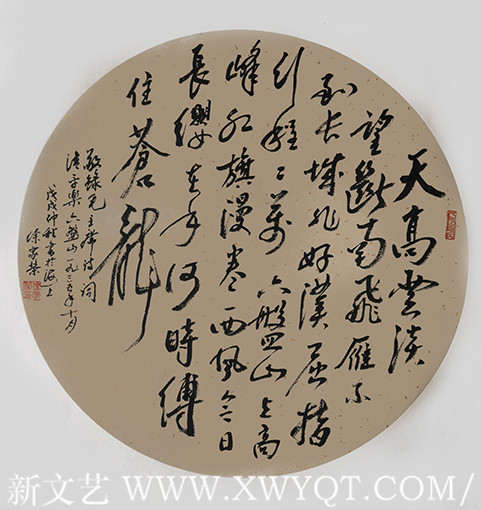 天高雲淡
望斷南飛雁不
到長城非好漢屈指
行程二萬六盤山上高
峰紅旗漫卷西風今日
長纓在手何時縛
住蒼龍
敬錄毛主席詩詞
清平樂六盤山一九三五年十月
戊戌仲秋書於海上
徐家榮
新文艺 WWW.XWYQT.COM/